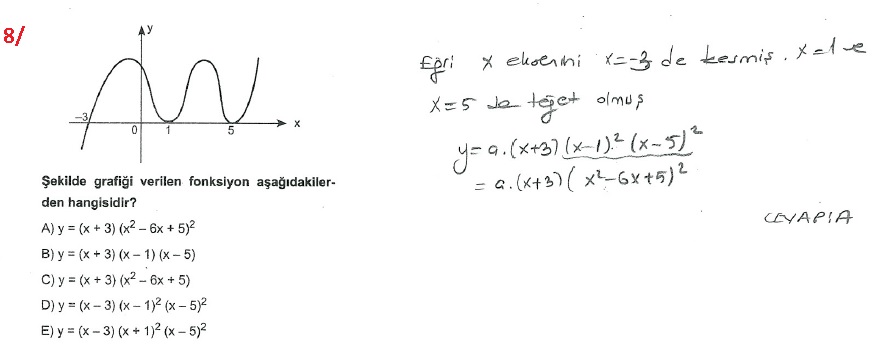 8/
y
-3
0
1
5
x
Şekilde grafiği verilen fonksiyon aşağıdakiler-
den hangisidir?
A) y = (x + 3) (x² – 6x + 5)²
B) y = (x + 3) (x – 1) (x – 5)
C) y = (x + 3) (x² – 6x + 5)
D) y = (x – 3) (x – 1)² (x – 5)²
E) y = (x – 3) (x + 1)² (x – 5)²
Eğri x eksenini x=-3 de kesmiş. x=1 ve
x=5 de teğet olmuş
y= a.(x+3)(x-1)².(x-5)²
= a.(x+3)(x²-6x+5)²
CEVAP:A